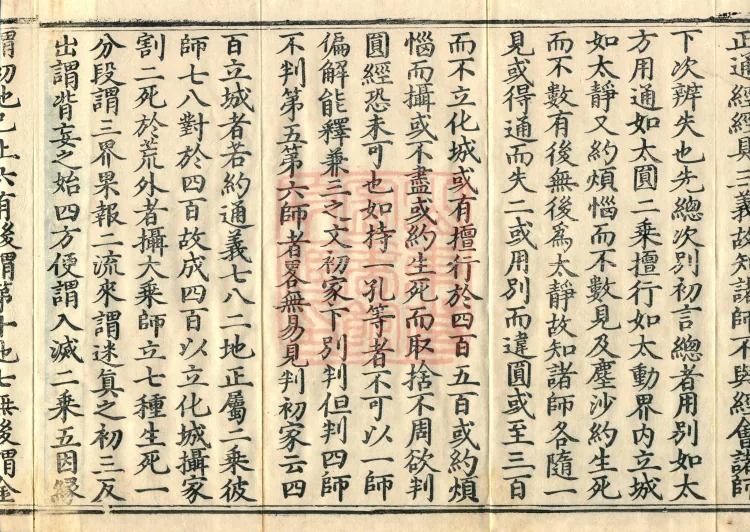 正通經經具三義故知諸師不與經會諸師
下次辨失也先總次別初言總者用別如太
方用通如太圓二乘擅行如太動界內立城
如太靜又約煩惱而不數見及塵沙約生死
而不數有後無後為太靜故知諸師各隨一
見或得通而失二或用別而違圓或至三百
而不立化城或有擅行於四百五百或約煩
惱而攝或不盡或約生死而取捨不周欲判
圓經恐未可也如持一孔等者不可以一師
偏解能釋兼三之文初家下別判但判四師
不判第五第六師者畧無易見判初家云四
百立城者若約通義七八二地正屬二乘彼
師七八對於四百故成四百以立化城攝家
割二死於荒外者攝大乘師立七種生死一
分段謂三界果報二流來謂迷真之初三反
出謂背妄之始四方便謂入滅二乘五因緣
謂初地已上六有後謂第十地七無後謂金